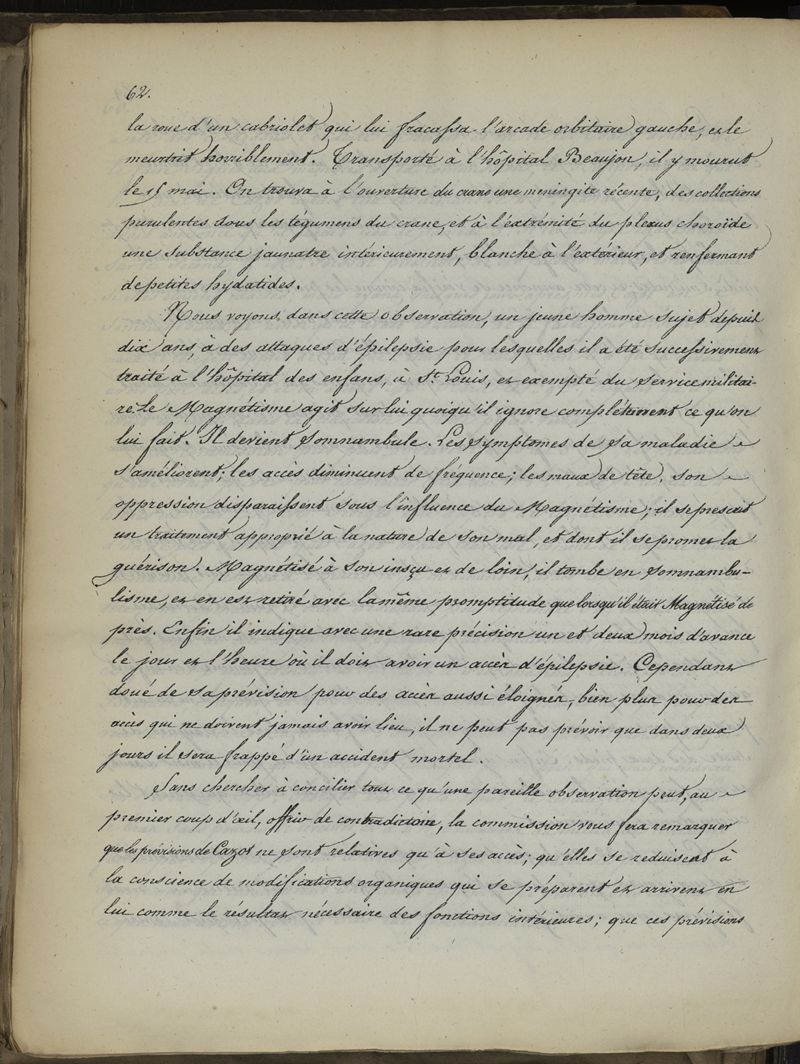 62.
la roue d'un cabriolet qui lui fracassa l'arcade orbitaire gauche, et le
meurtrit horriblement. Transporté à l'hôpital Beaujon, il y mourut
le 15 mai. On trouva à l'ouverture du crane une meningite récente, des collections
purulentes dous les tégumens du crane, et à l'éxtrénité du plexus choroïde
une substance jaunatre intérieurement, blanche à l'extérieur, et renfermant
de petites hydatides.
Nous voyons, dans cette observation, un jeune homme sujet depuis
dix ans, à des attaques d'épilepsie pour lesquelles il a été successivement
traité à l'hôpital des enfans, à St. Louis, et exempté du service militai-
re. Le Magnétisme agit sur lui quoiqu'il ignore complétement ce qu'on
lui fait. Il devient somnambule. Les symptomes de sa maladie
s'améliorent; les accès diminuent de fréquence; les maux de tête, son
oppression disparaissent sous l'influence du Magnétisme; il se prescrit
un traitement approprié à la nature de son mal, et dont il se promet la
guérison. Magnétisé à son insçu et de loin, il tombe en somnambu-
lisme, et en est retiré avec la même promptitude que lorsqu'il était Magnétisé de
près. Enfin il indique avec une rare précision un et deux mois d'avance
le jour et l'heure où il doit avoir un accès d'épilepsie. Cependant
doué de sa prévision pour des accès aussi éloignés, bien plus pour des
accès qui ne doivent jamais avoir lieu, il ne peut pas prévoir que dans deux
jours il sera frappé d'un accident mortel.
Sans chercher à concilier tout ce qu'une pareille observation peut, au
premier coup d'œil, offrir de contradictoire, la commission vous fera remarquer
que les prévisions de Cazot ne sont relatives qu'à ses accès; qu'elles se reduisent à
la conscience de modifications organiques qui se préparent et arrivent en
lui comme le résultat nécessaire des fonctions intérieures; que ces prévisions